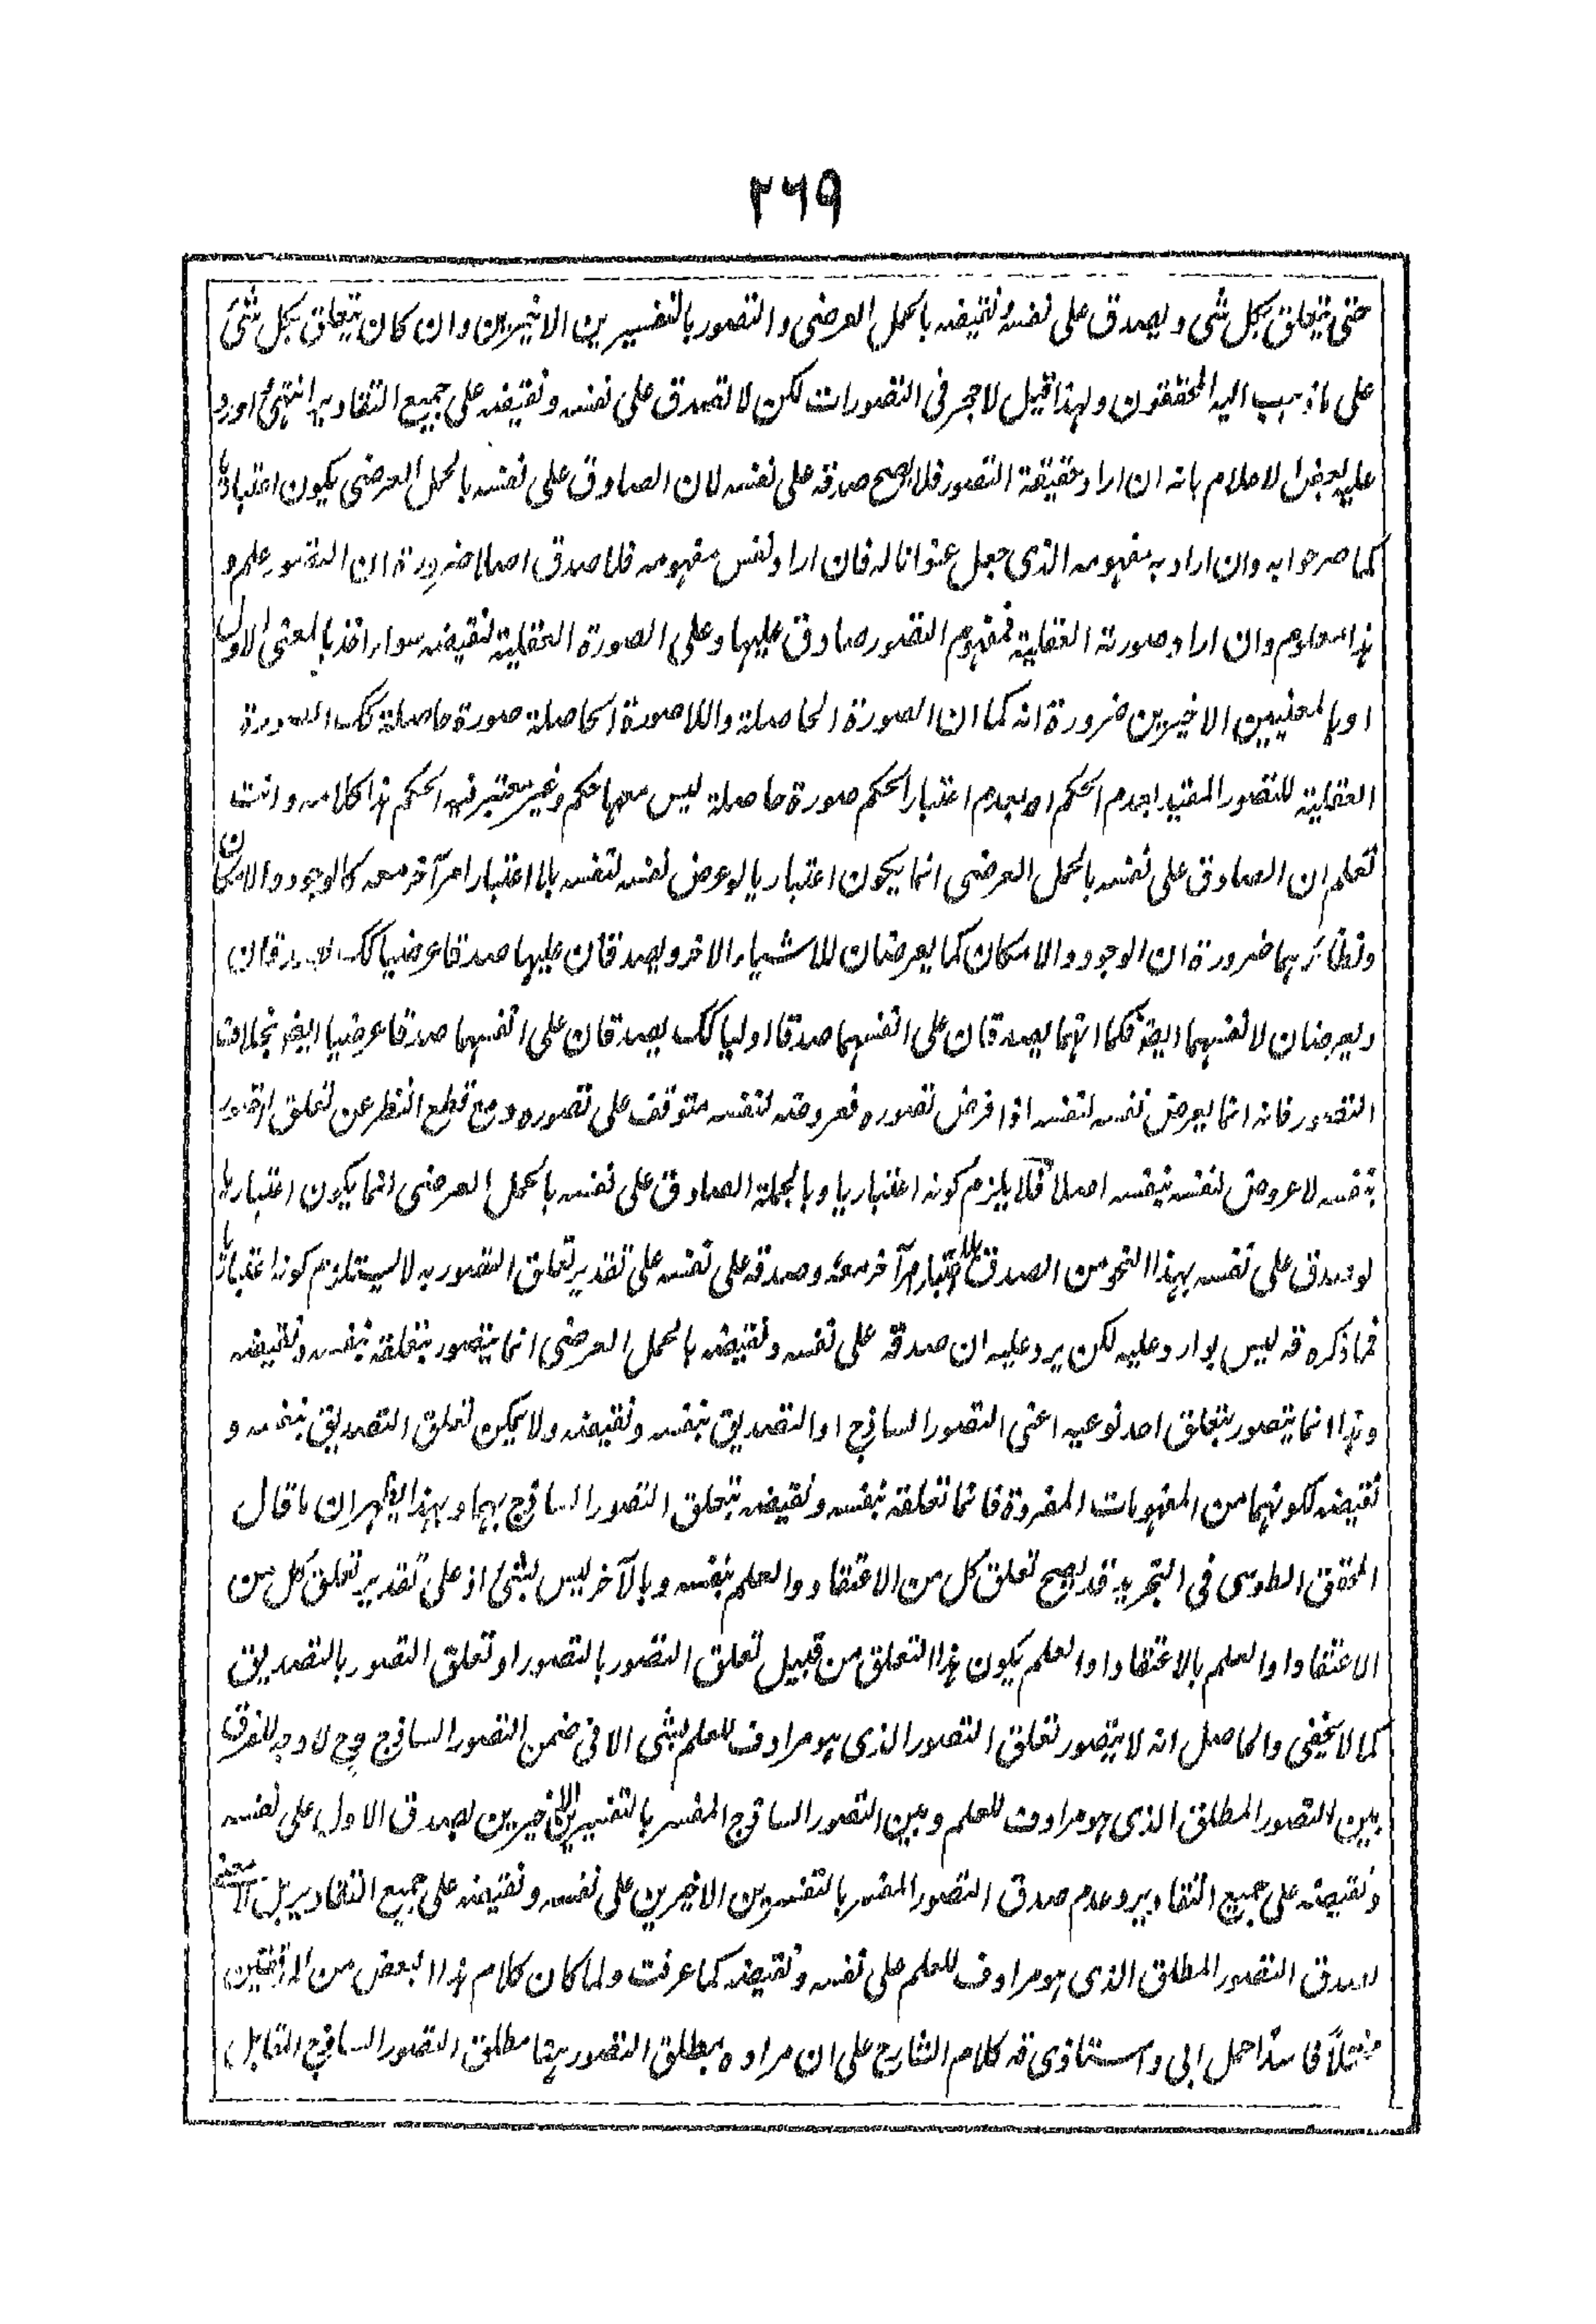 ۲۶۹
حتى يتعلق بكل شى ويصدق على نفسه ونقيضه بالحمل العرضى والتصور بالتفسيرين الاخيرين وان كان يتعلق بكل شئ
على ما ذهب اليه المحققون ولهذا قيل لا حجر فى التصورات لكن لا تصدق على نفسه ونقيضه على جميع التقادير انتهى اورد
عليه بعض الاعلام بانه ان اراد حقيقة التصور فلا يصح صدقه على نفسه لان الصادق على نفسه بالحمل العرضى يكون اعتباريا
كما صرحوا به وان اراد به مفهومه الذى جعل عنوانا له فان اراد نفس مفهومه فلا صدق اصلا ضرورة ان التصور علم و
هذا معلوم وان اراد صورته العقلية فمفهوم التصور صادق عليها وعلى الصورة العقلية لنقيضه سواء اخذ بالمعنى الاول
او بالمعنيين الاخيرين ضرورة انه كما ان الصورة الحاصلة واللاصورة الحاصلة صورة حاصلة كك الصورة
العقلية للتصور المقيد بعدم الحكم او بعدم اعتبار الحكم صورة حاصلة ليس معها حكم وغير معتبر فيه الحكم هذا كلامه وانت
تعلم ان الصادق على نفسه بالحمل العرضى انما يكون اعتباريا لو عرض نفسه لنفسه بلا اعتبار امر آخر معه كالوجود والامكان
ونظائرهما ضرورة ان الوجود والامكان كما يعرضان للاشياء الاخر ويصدقان عليها صدقا عرضيا كك يصدقان
ويعرضان لانفسهما ايضا فكما انهما يصدقان على انفسهما صدقا اوليا كك يصدقان على انفسهما صدقا عرضيا ايضا بخلاف
التصور فانه انما يعرض نفسه لنفسه اذا فرض تصوره فعروضه لنفسه متوقف على تصوره ومع قطع النظر عن تعلق التصور
بنفسه لا عروض لنفسه بنفسه اصلا فلا يلزم كونه اعتباريا وبالجملة الصادق على نفسه بالحمل العرضى انما يكون اعتباريا
لو صدق على نفسه بهذا النحو من الصدق بلا اعتبار امر آخر معه وصدقه على نفسه على تقدير تعلق التصور به لا يستلزم كونه اعتباريا
فما ذكره قه ليس بوارد عليه لكن يرد عليه ان صدقه على نفسه ونقيضه بالحمل العرضى انما يتصور بتعلقه بنفسه ونقيضه
وهذا انما يتصور بتعلق احد نوعيه اعنى التصور الساذج او التصديق بنفسه ونقيضه ولا يمكن تعلق التصديق بنفسه و
نقيضه لكونهما من المفهومات المفردة فانما تعلقه بنفسه ونقيضه بتعلق التصور الساذج بهما وبهذا يظهر ان ما قال
المحقق الطوسى فى التجريد قد يصح تعلق كل من الاعتقاد والعلم بنفسه وبالآخر ليس بشئ اذ على تقدير تعلق كل من
الاعتقاد او العلم بالاعتقاد او العلم يكون هذا التعلق من قبيل تعلق التصور بالتصور او تعلق التصور بالتصديق
كما لا يخفى والحاصل انه لا يتصور تعلق التصور الذى هو مرادف للعلم بشى الا فى ضمن التصور الساذج فح لا وجه للفرق
بين التصور المطلق الذى هو مرادف للعلم وبين التصور الساذج المفسر بالتفسيرين الاخيرين بصدق الاول على نفسه
ونقيضه على جميع التقادير وعدم صدق التصور المفسر بالتفسيرين الاخيرين على نفسه ونقيضه على جميع التقادير بل لا معنى
لصدق التصور المطلق الذى هو مرادف للعلم على نفسه ونقيضه كما عرفت ولما كان كلام هذا البعض من المدققين
مختلا فاسدا حمل ابى واستاذى قه كلام الشارح على ان مراده بمطلق التصور ههنا مطلق التصور الساذج المقابل